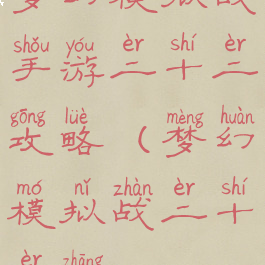 梦幻模拟战
shǒu yóu èr shí èr
手游二十二
gōng lüè mèng huàn
攻略（梦幻
mó nǐ zhàn èr shí
模拟战二十
èr zhāng